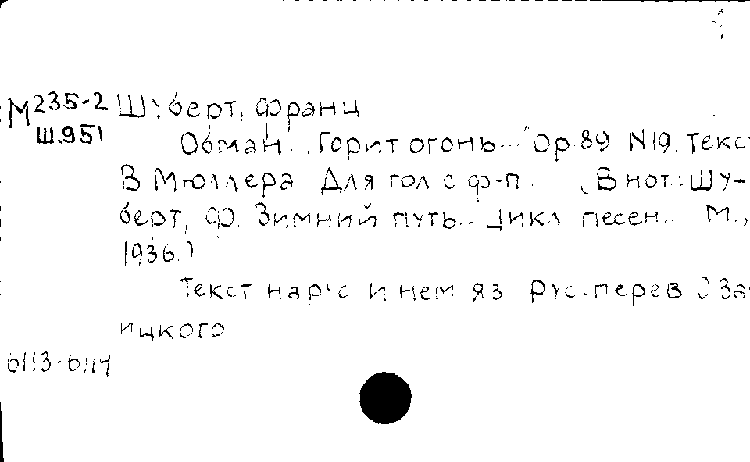 М235-2 Шуберт, Франц
Ш.951
Обман. "Горит огонь..." Op.89 N19. Текст
В Мюллера Для гол с ф-п. (В нот.: Шу-
берт, Ф. Зимний путь. Цикл песен. М.,
1936.)
Текст на рус и нем яз Рус. перев С За-
ицкого
6113-6114